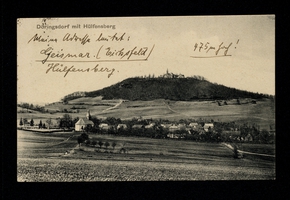 Döringsdorf mit Hülfensberg
Meine Adresse lautet:
Geismar (Eichsfeld)
Hülfensberg.
475 m hoch!